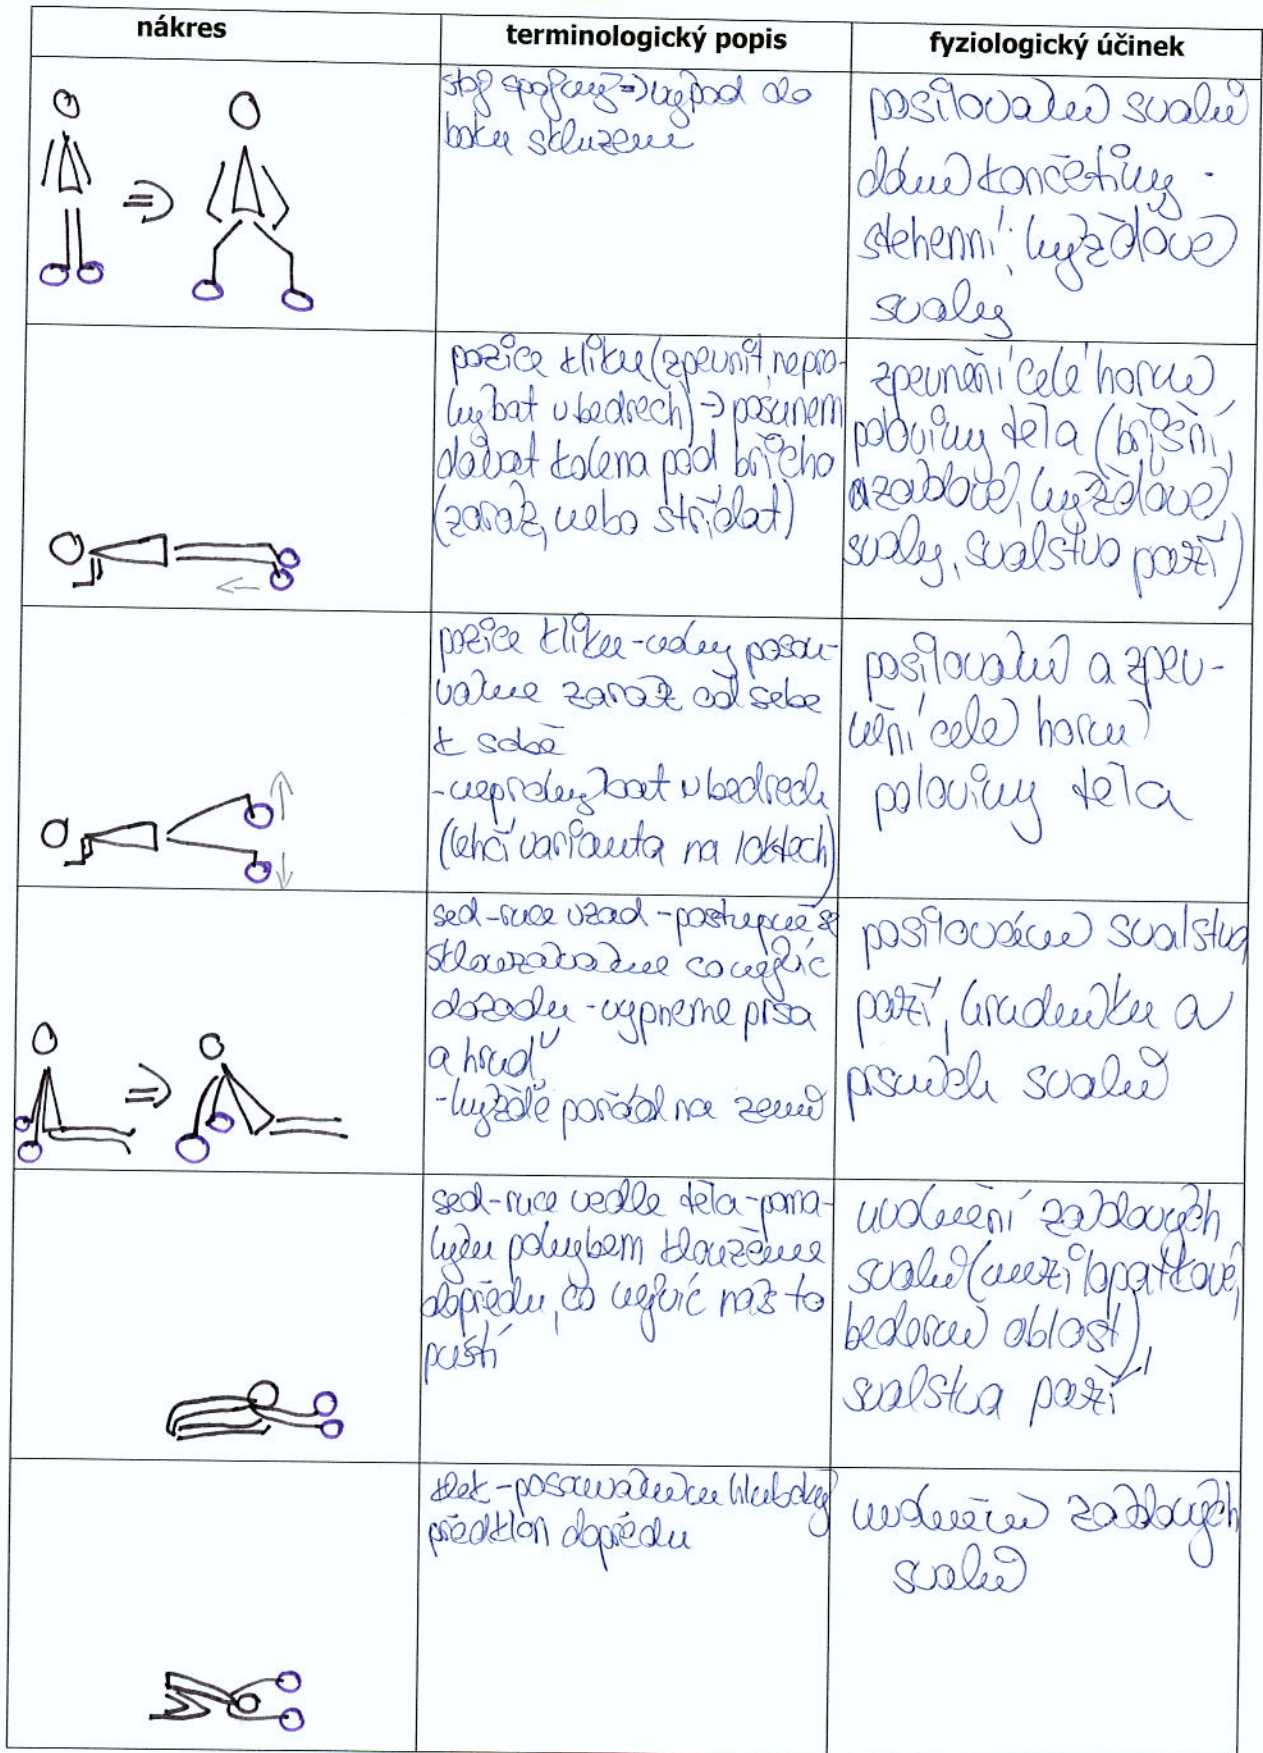 nákres
terminologický popis
fyziologický účinek
stoj spojný => výpad do
boku skluzem
posilování svalů
dolní končetiny -
stehenní, hýžďové
svaly
pozice kliku (zpevnit, nepro-
hýbat v bedrech) -> posunem
dávat kolena pod břicho
(zaráz, nebo střídat)
zpevnění celé horní
poloviny těla (břišní,
zádové, hýžďové
svaly, svalstvo paží)
pozice kliku - nohy posou-
váme zaráz od sebe
k sobě
- neprohýbat v bedrech
(lehčí varianta na loktech)
posilování a zpev-
nění celé horní
poloviny těla
sed - ruce vzad - postupně se
sklouzáváme co nejvíc
dozadu - vypneme prsa
a hruď
- hýždě pořád na zemi
posilování svalstva
paží, hrudníku a
prsních svalů
sed - ruce vedle těla - poma-
lým pohybem kloužeme
dopředu, co nejvíc nás to
pustí
uvolnění zádových
svalů (mezilopatkové,
bederní oblast),
svalstva paží
klek - posouváním hluboký
předklon dopředu
uvolnění zádových
svalů